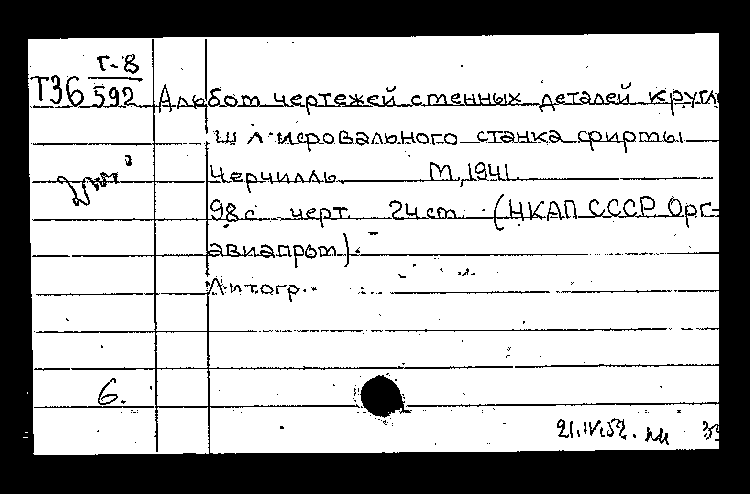 Г-8
Т36 592 Альбом чертежей стенных деталей кругло
шлифовального станка фирмы
Черчилль. М., 1941.
98 с. черт. 24 cm. (НКАП СССР Орг-
авиапром).
Литогр.
6.
21.IV.52.